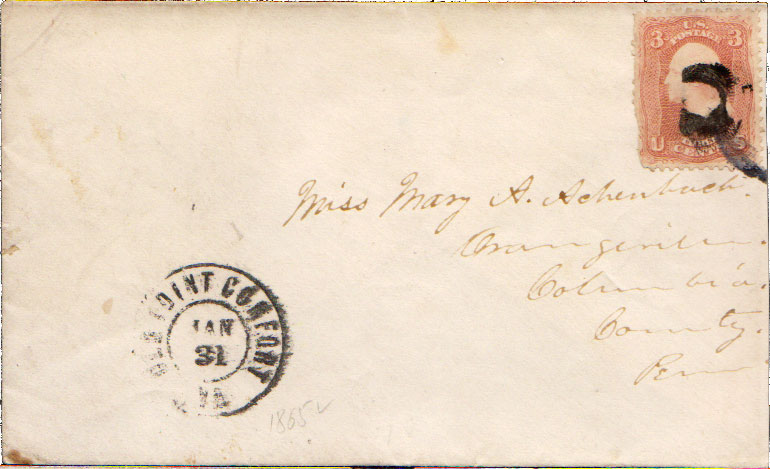 3 U.S. 3
POSTAGE
U S
CENTS
Miss Mary A. Achenbach.
Orangeville.
Columbia.
County.
Penn
OLD POINT COMFORT
JAN
31
VA
1865